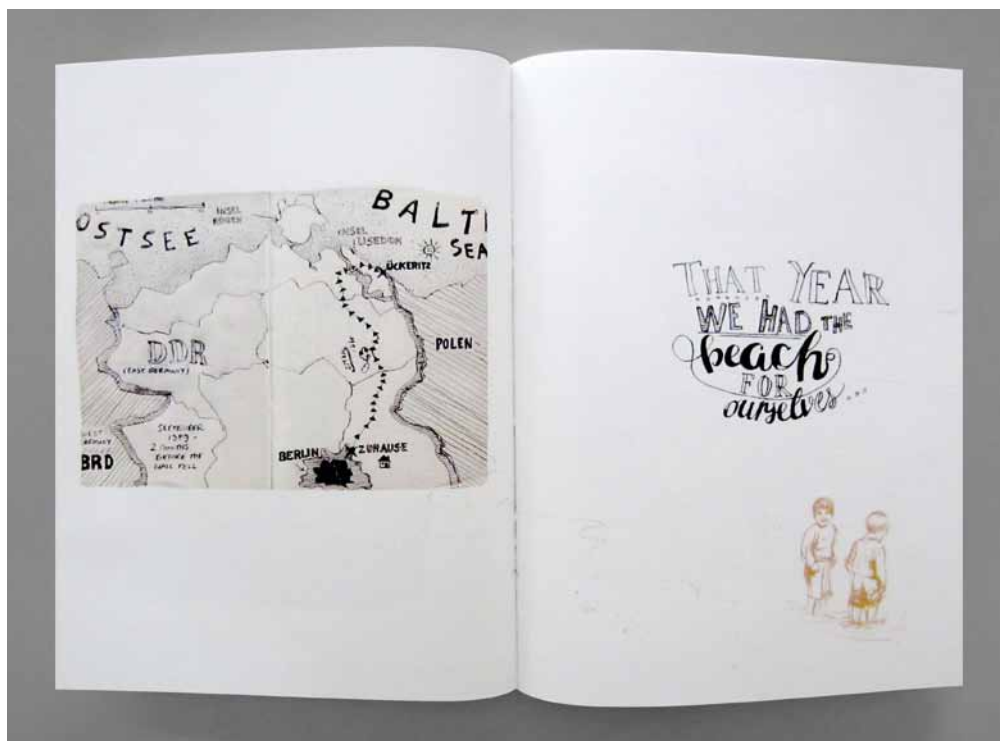 OSTSEE
INSEL
RÜGEN
BALTI
SEA
INSEL
USEDOM
ÜCKERITZ
POLEN
DDR
(EAST GERMANY)
SEPTEMBER
1989 -
2 MONTHS
BEFORE THE
WALL FELL
WEST
GERMANY
BRD
BERLIN
ZUHAUSE
THAT YEAR
WE HAD THE
beach
FOR
ourselves...